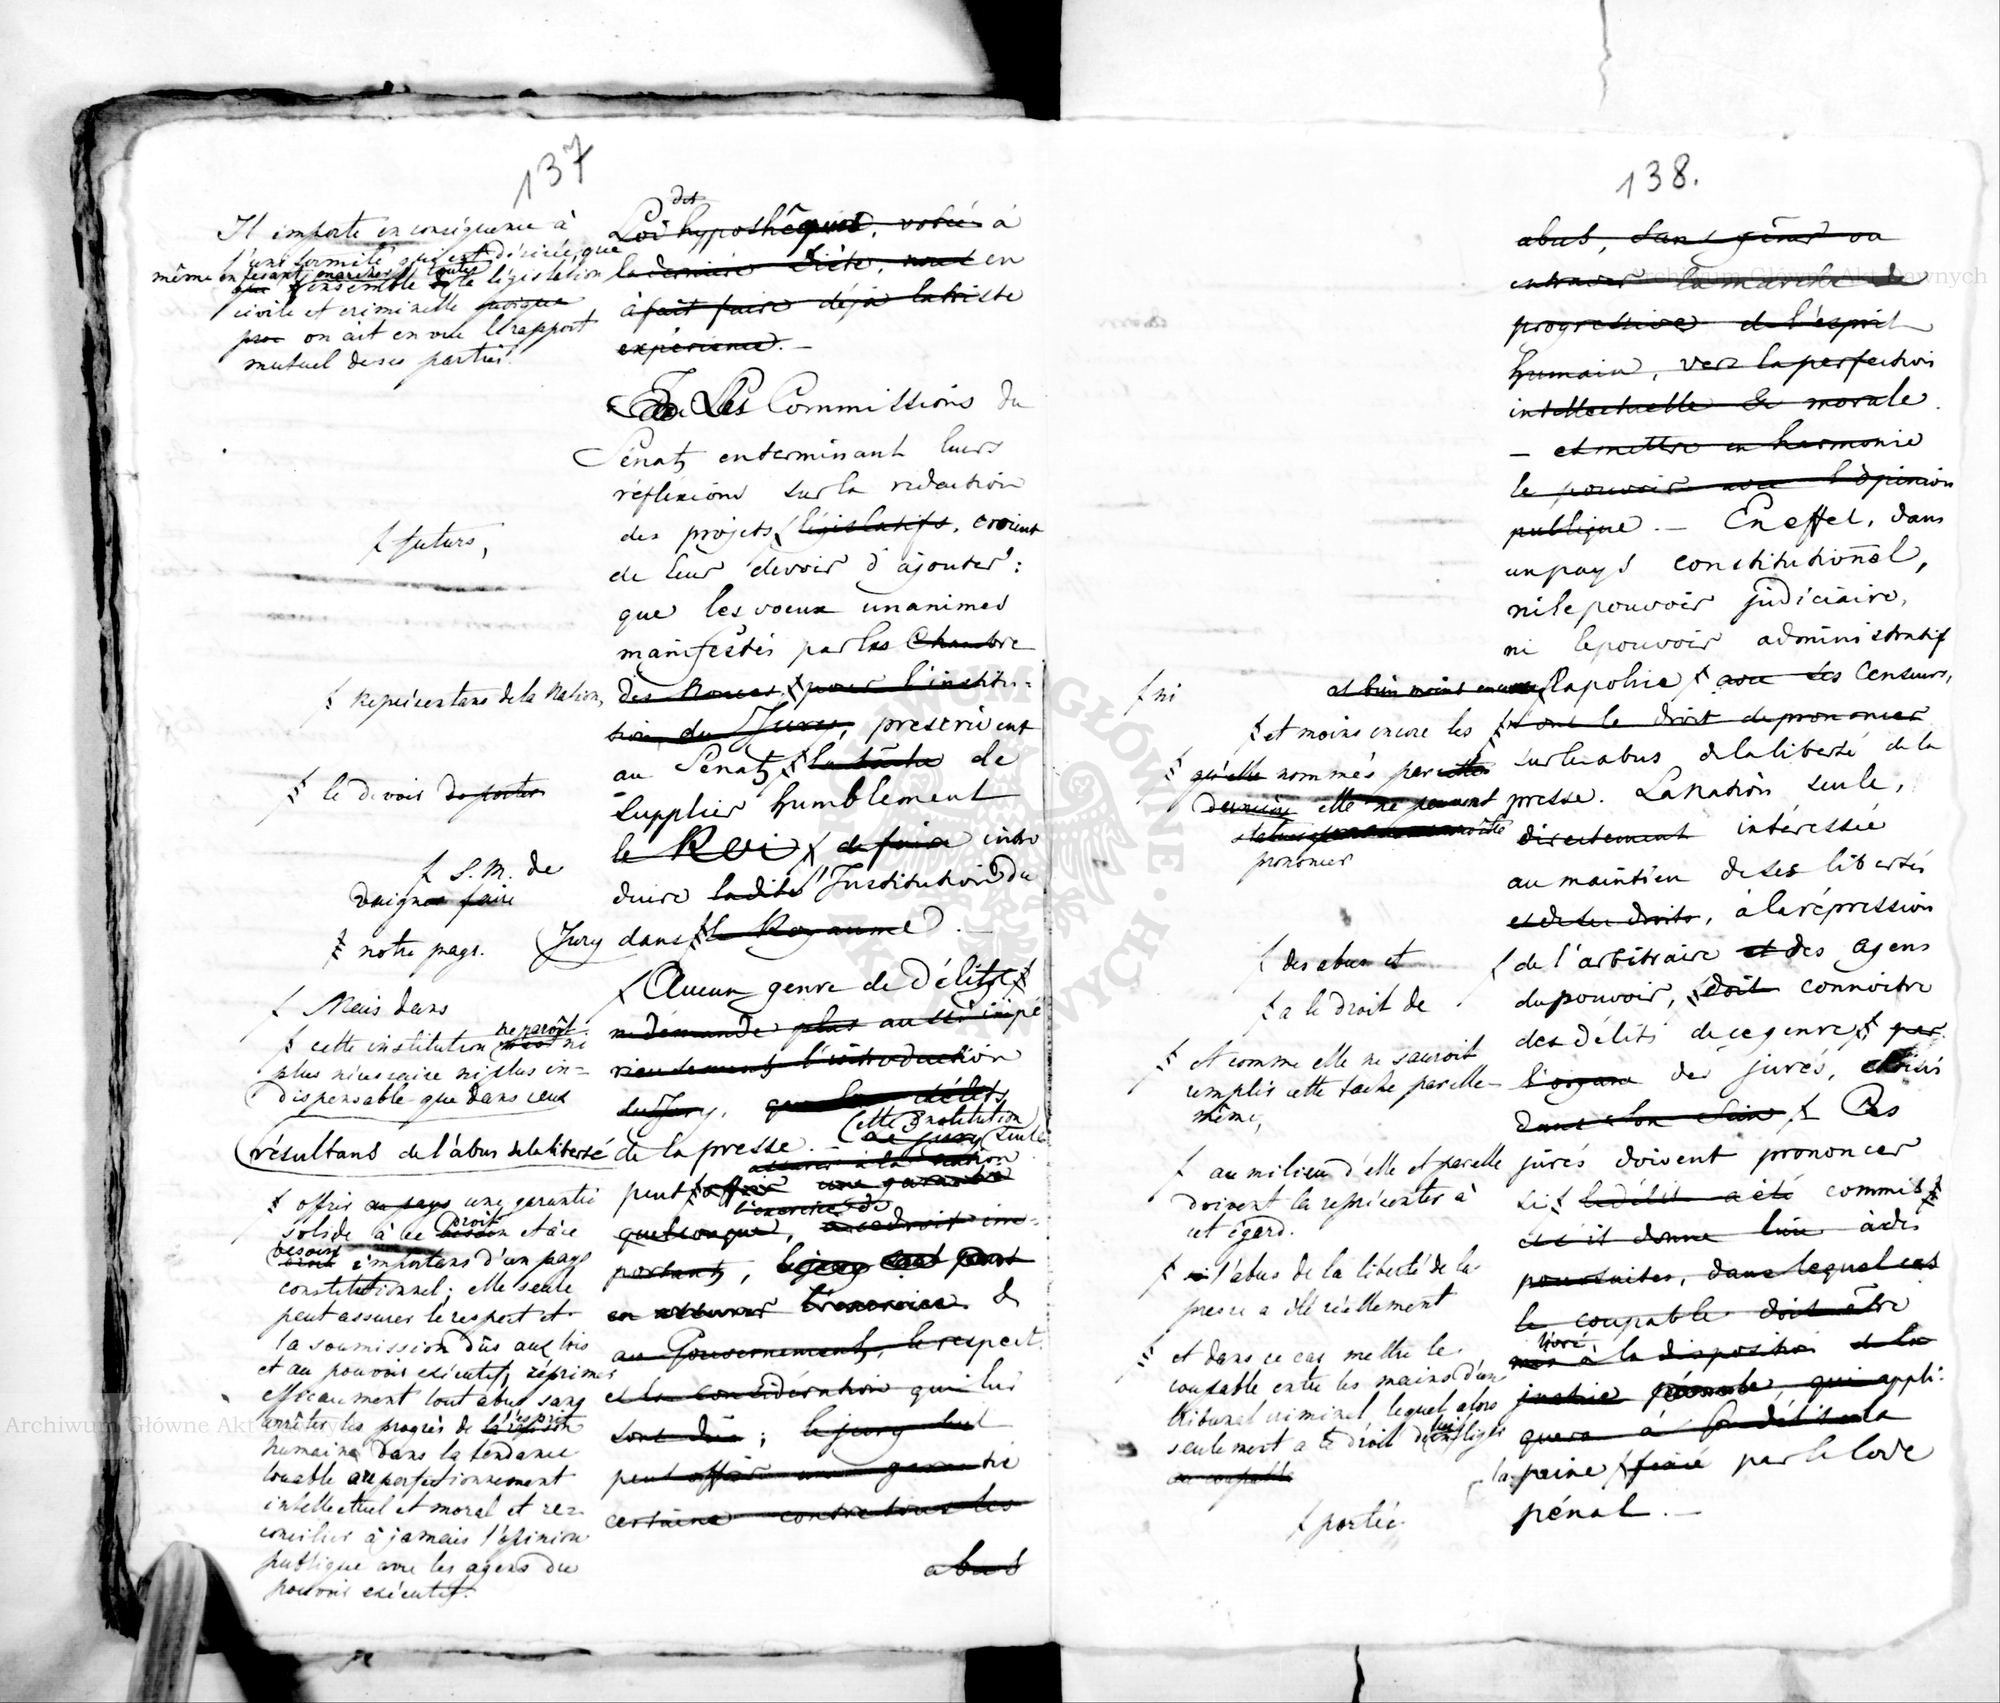 137
Il importe en conséquence à
l'uniformité qui est désirée, que
même en fesant marcher toutes
ensemble la législation
civile et criminelle
on ait en vue le rapport
mutuel de ses parties.
f futurs,
f Représentans de la Nation,
f le devoir de porter
f S. M. de
daigner faire
f notre pays.
f Mais dans
f cette institution ne paroît ni
plus nécessaire ni plus in=
dispensable que dans ceux
résultans de l'abus de la liberté
f offrir au pays une garantie
solide à ce droit et à ce
besoin importans d'un pays
constitutionnel; elle seule
peut assurer le respect et
la soumission dûs aux lois
et au pouvoir exécutif, réprimer
efficacement tout abus sans
arrêter les progrès de l'esprit
humain dans la tendance
louable au perfectionnement
intellectuel et moral et ré=
concilier à jamais l'opinion
publique avec les agens du
pouvoir exécutif.
des
Loi hypothéquaire, votée à
la dernière Diète, nous en
à fait faire déjà la triste
expérience. —
Les Commissions du
Sénat, en terminant leurs
réflexions sur la rédaction
des projets législatifs, croient
de leur devoir d'ajouter:
que les voeux unanimes
manifestés par les Chambre
des Nonces, pour l'institu=
tion du Jury, prescrivent
au Sénat, la tâche de
supplier humblement
le Roi, de faire intro
duire ladite Institution du
Jury dans le Royaume. —
Aucun genre de Délits
ne demande plus aussi impé
rieusement l'introduction
du Jury, que les délits
de la presse. cette institution
le jury seule
assurer à la nation
peut offrir une garantie
l'exercice de
quelconque, à ce droit im=
portant, le jury seul peut
en assurer l'exercice &
au Gouvernement, le respect
et la considération qui lui
sont dûs; le jury seul
peut offrir une garantie
certaine contre tous les
abus
138.
f ni
f et moins encore les
qu'elle nommés par cette
dernière elle ne peuvent
prononcer
f des abus et
f a le droit de
f et comme elle ne sauroit
remplir cette tache par elle-
même,
f au milieu d'elle et par elle
doivent la représenter à
cet égard.
f si l'abus de la liberté de la
presse a été réellement
f et dans ce cas mettre le
coupable entre les mains d'un
tribunal criminel lequel alors
seulement a le droit d'infliger
lui
au coupable
f portée
abus, sans gêner ou
entraver la marche de
progressive de l'esprit
humain, vers la perfection
intellectuelle & morale.
— et mettre en harmonie
le pouvoir avec l'opinion
publique. — En effet, dans
un pays constitutionel,
ni le pouvoir judiciaire,
ni le pouvoir administratif
et bien moins encore la police f avec ses Censeurs,
ont le droit de prononcer
sur les abus de la liberté de la
presse. La Nation seule,
directement intéressée
au maintien de ses libertés
et de ses droits, à la répression
f de l'arbitraire et des agens
du pouvoir, doit connoitre
des délits de ce genre, par
l'organe des jurés, choisis
dans son sein. f Ces
jurés doivent prononcer
si le délit a été commis
et s'il donne lieu à des
poursuites, dans lequel cas
le coupable doit être
livré,
mis à la disposition de la
justice pénale, qui appli=
quera à ce délit la
la peine fixée par le Code
pénal. —
Archiwum Główne Akt Dawnych
Archiwum Główne Akt Dawnych
ARCHIWUM GŁÓWNE AKT DAWNYCH